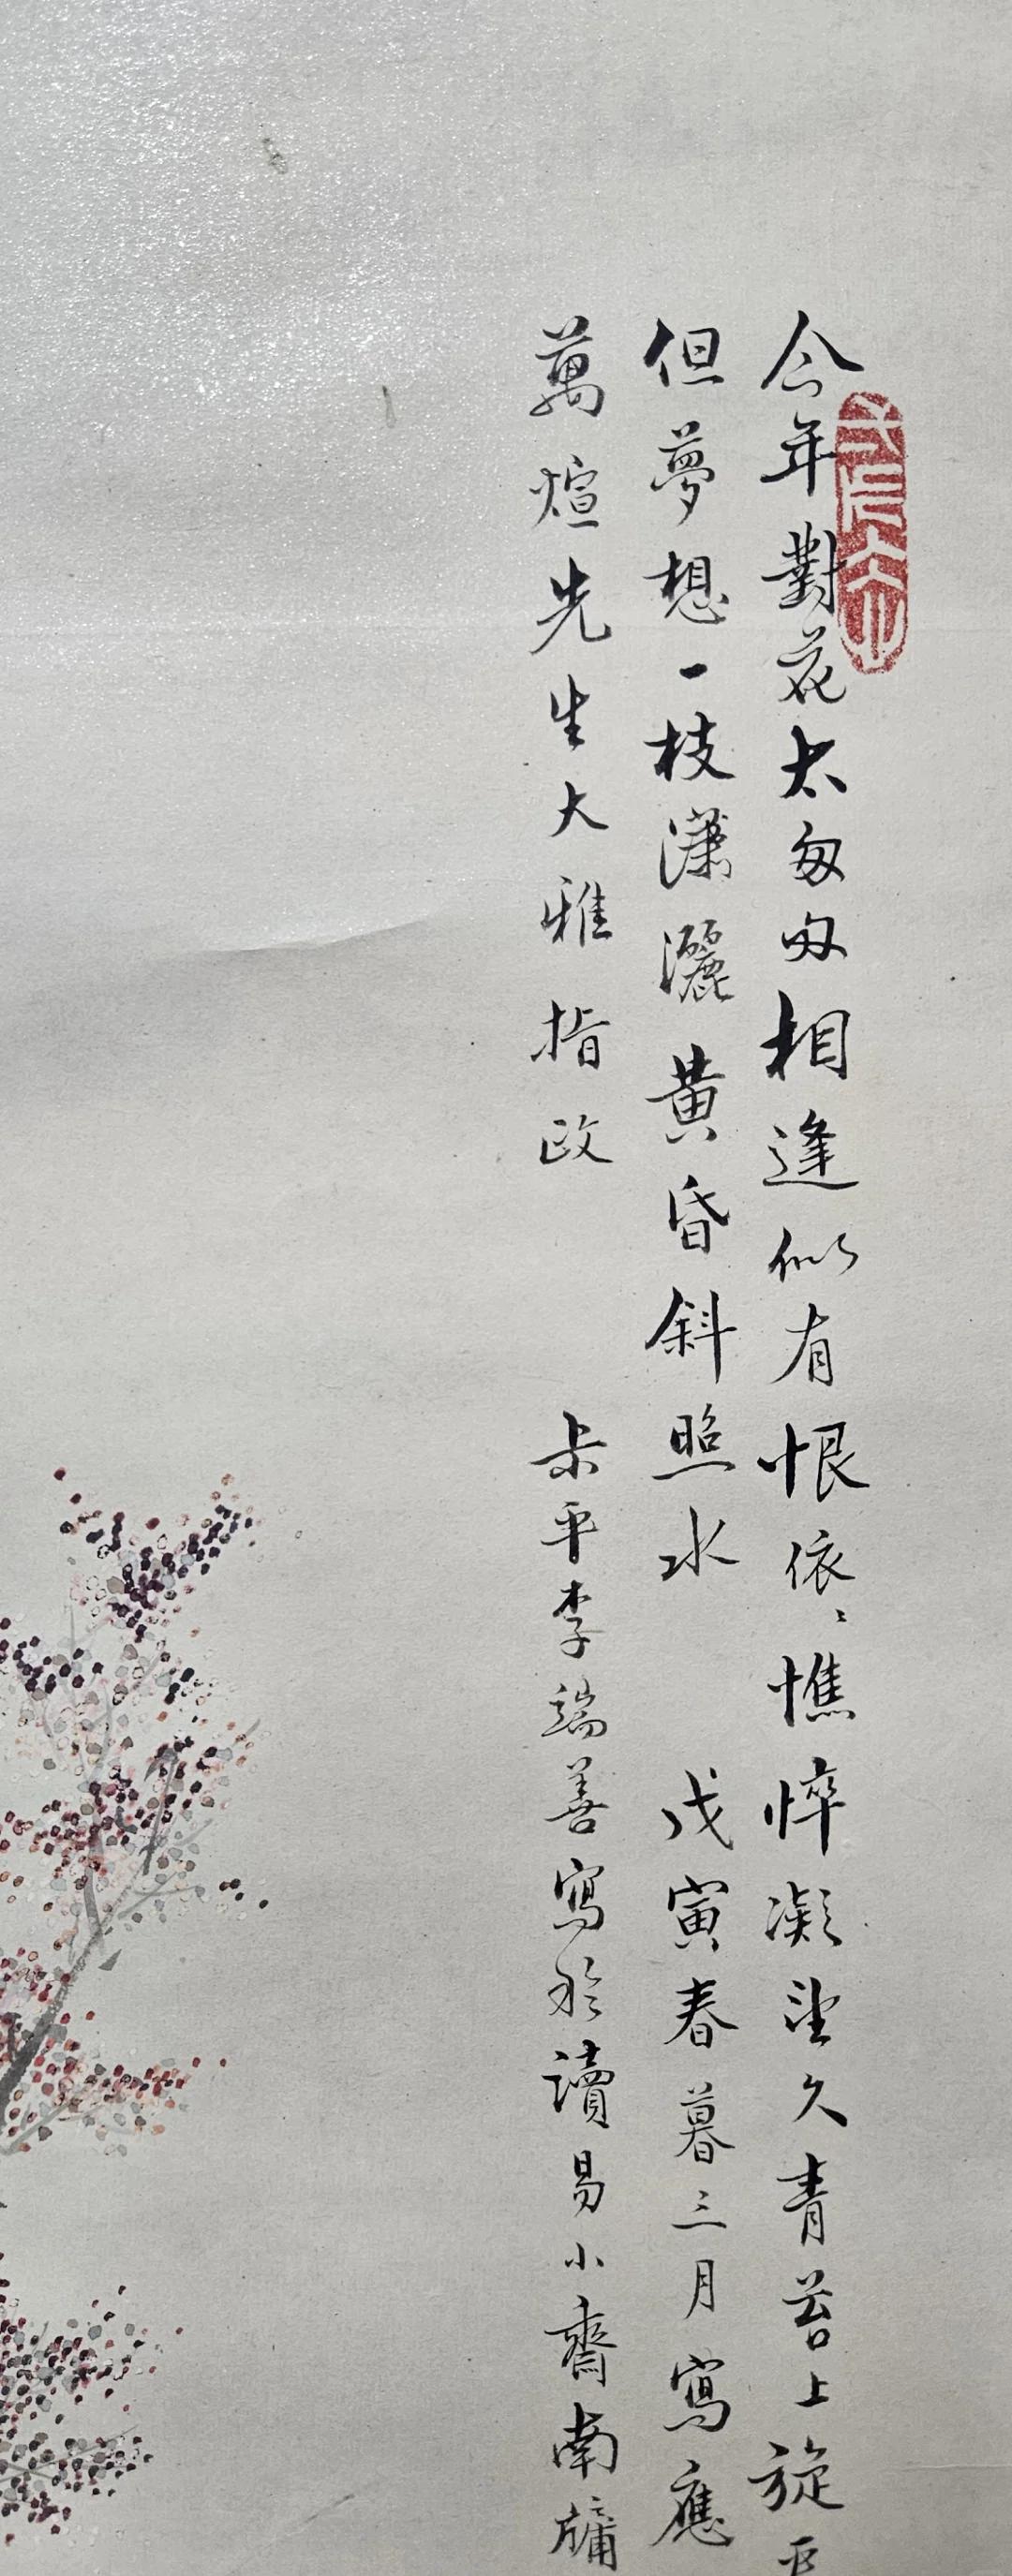 今年對花太匆匆相逢似有恨依〻憔悴凝望久青苔上旋
但夢想一枝瀟灑黃昏斜照水 戊寅春暮三月寫應
萬煊先生大雅指政 李端善寫於讀易小齋南牖